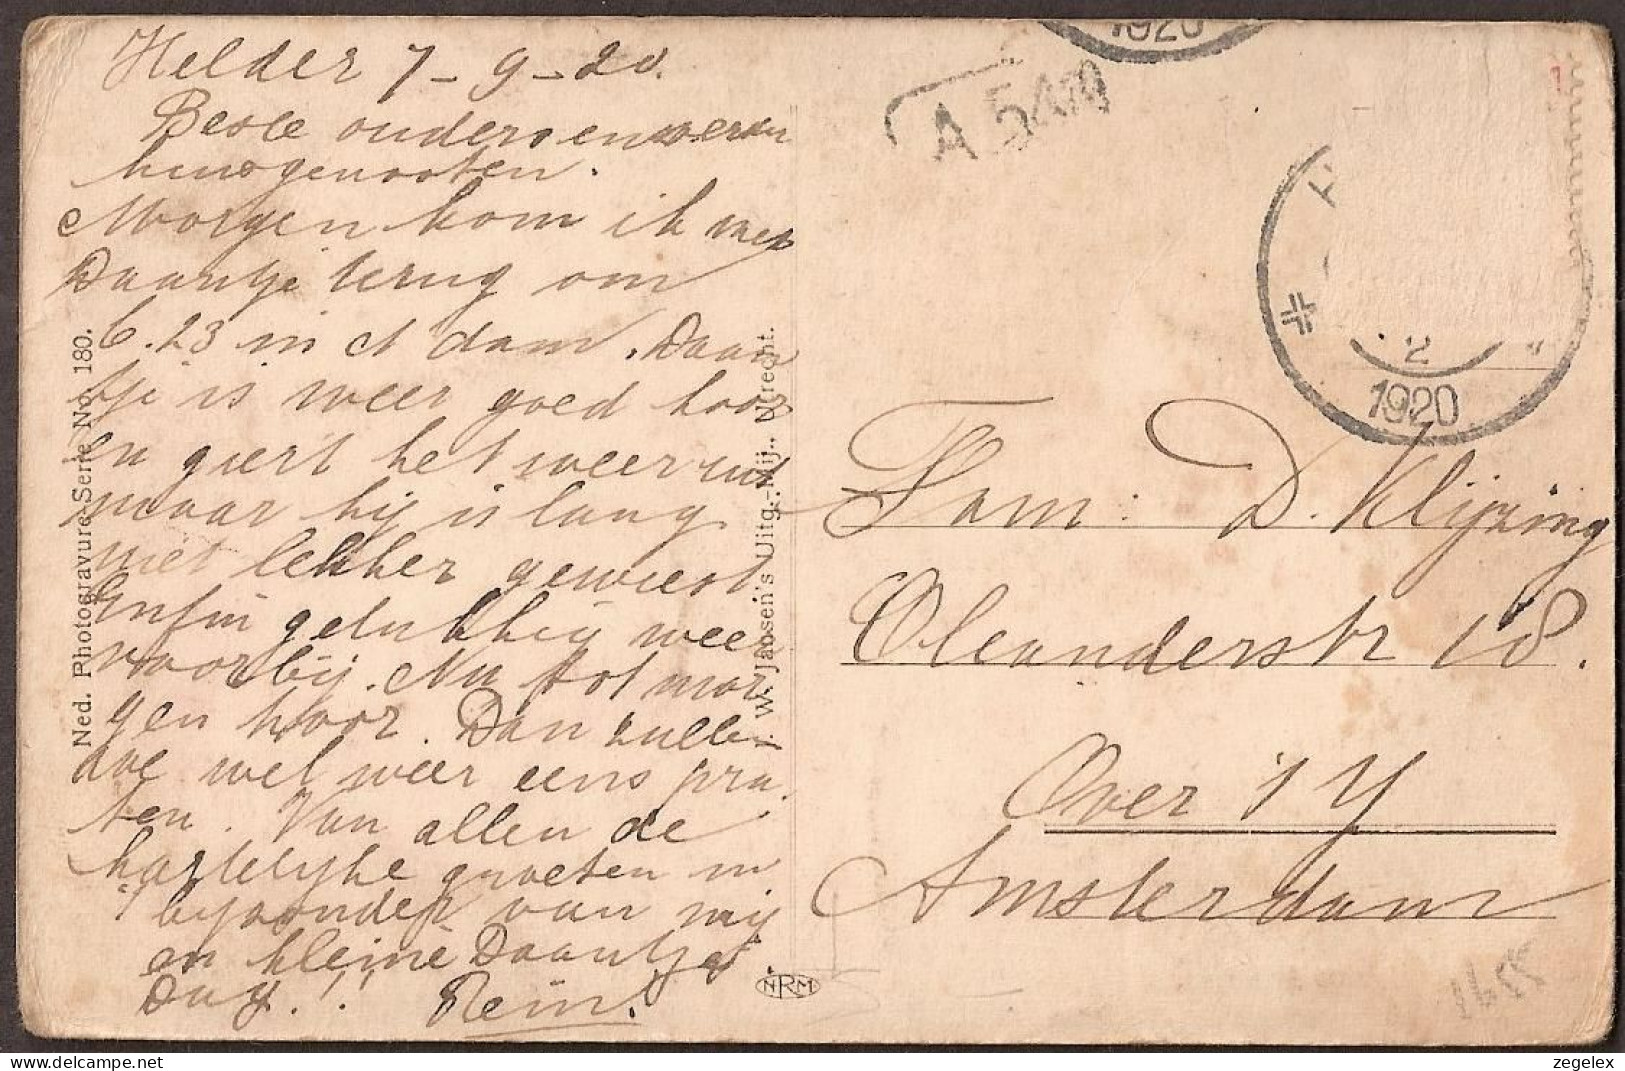 Helder 7-9-20.
Beste ouders en verere
huisgenooten.
Morgen kom ik met
Daantje terug om
6.23 in A dam. Daan
tje is weer goed hoor
en giert het weer uit
maar hij is lang
niet lekker geweest
Enfin gelukkig weer
voorbij. Nu tot mor
gen hoor. Dan zullen
we wel weer eens pra
ten. Van allen de
hartelijke groeten in
't byzonder van mij
en kleine Daantje.
Dag!! Rein.
Ned. Photogravure-Serie No. 180.
W. Jansen's Uitg.-Mij., Utrecht.
NRM
1920
A 54
2
1920
Fam: D. Klijzing
Oleanderstr 18.
Over 't Y
Amsterdam
zegelex